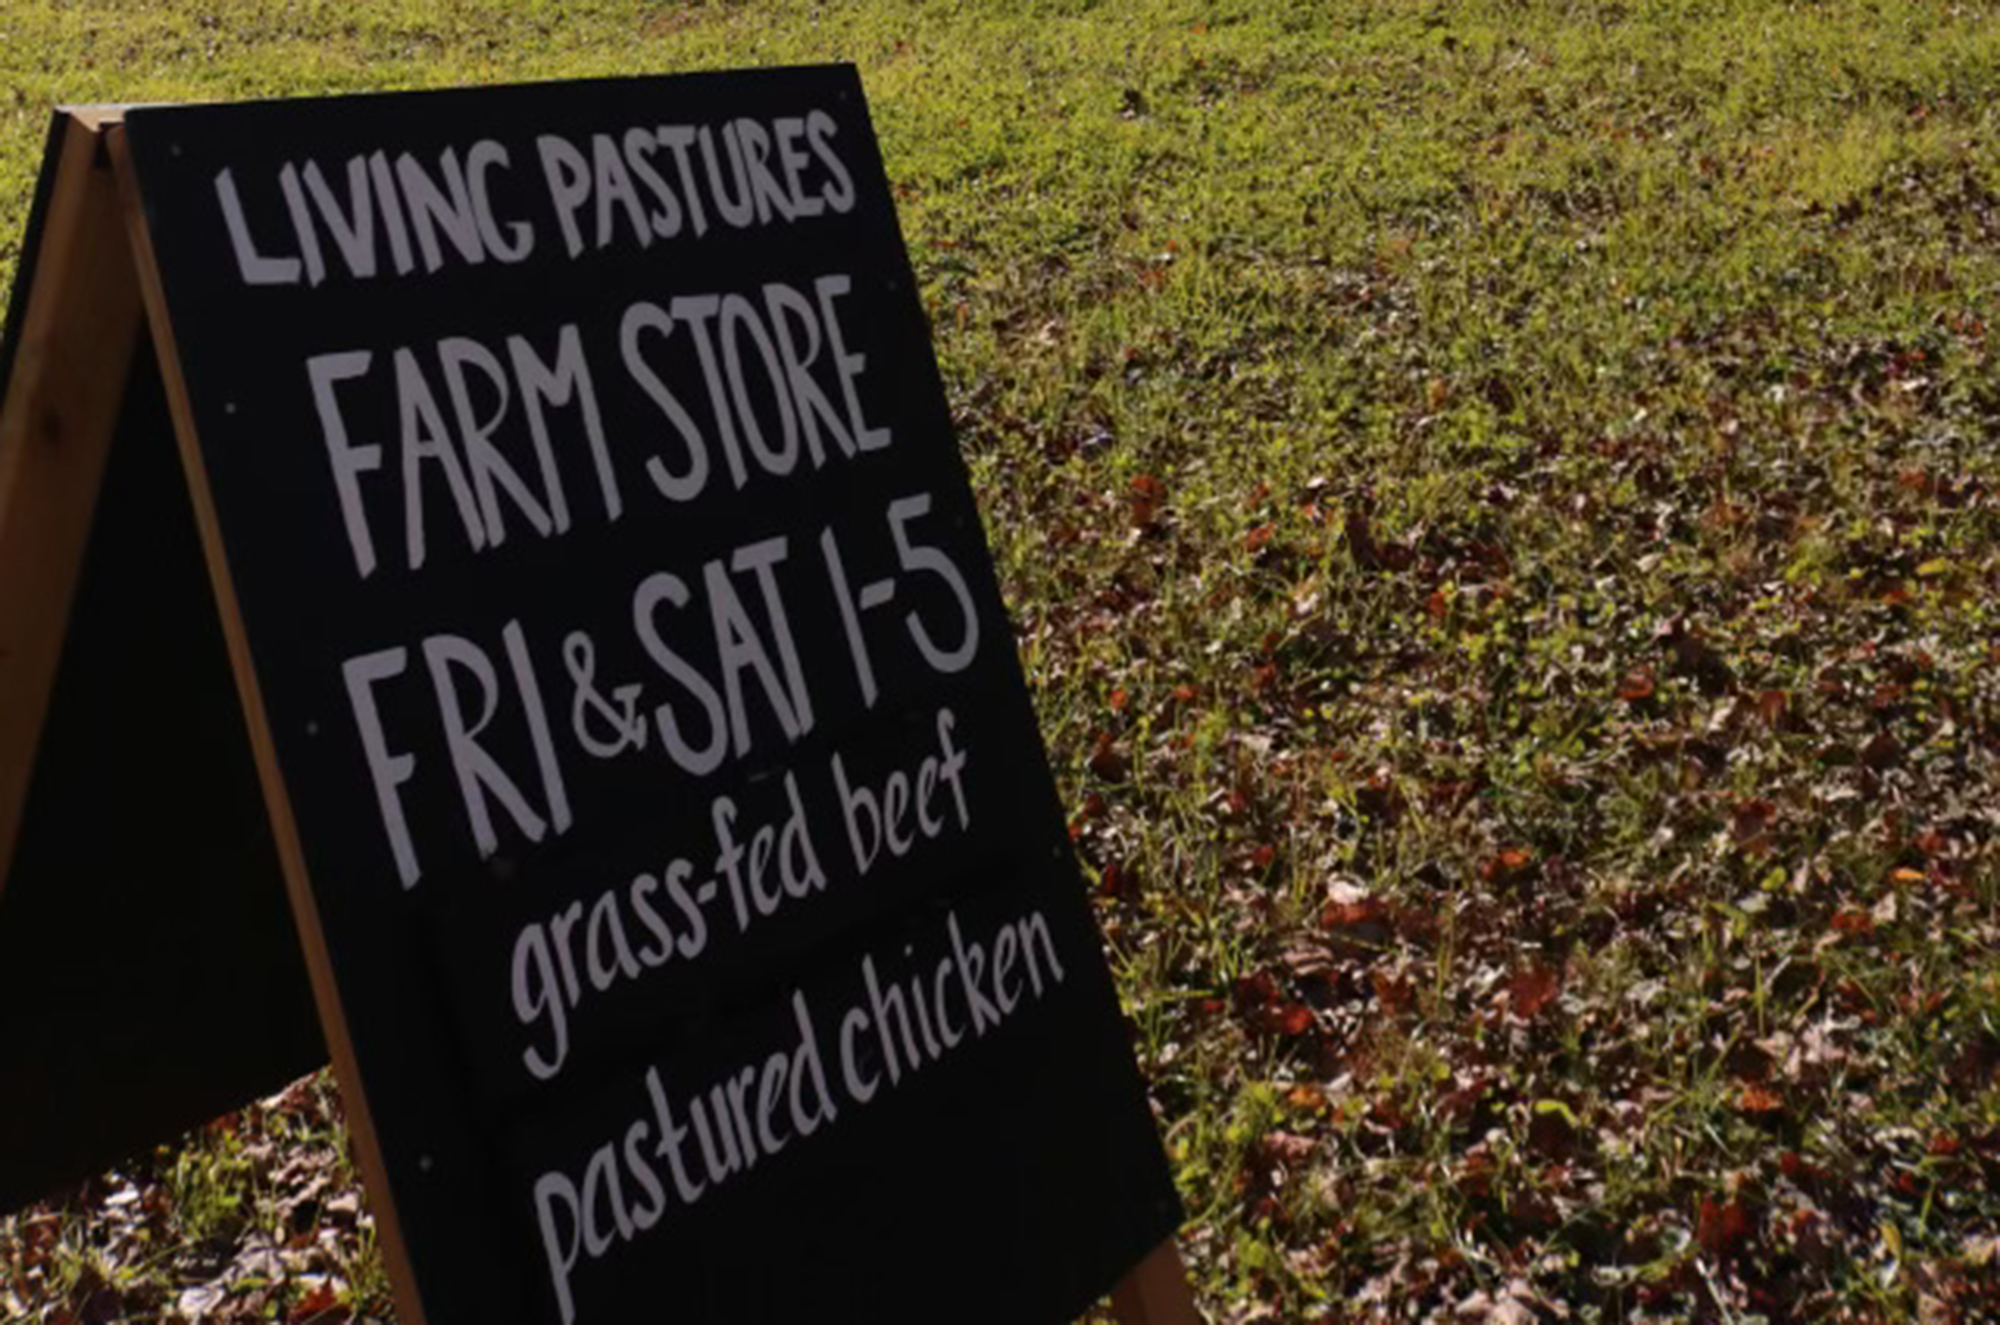 LIVING PASTURES
FARM STORE
FRI & SAT 1-5
grass-fed beef
pastured chicken